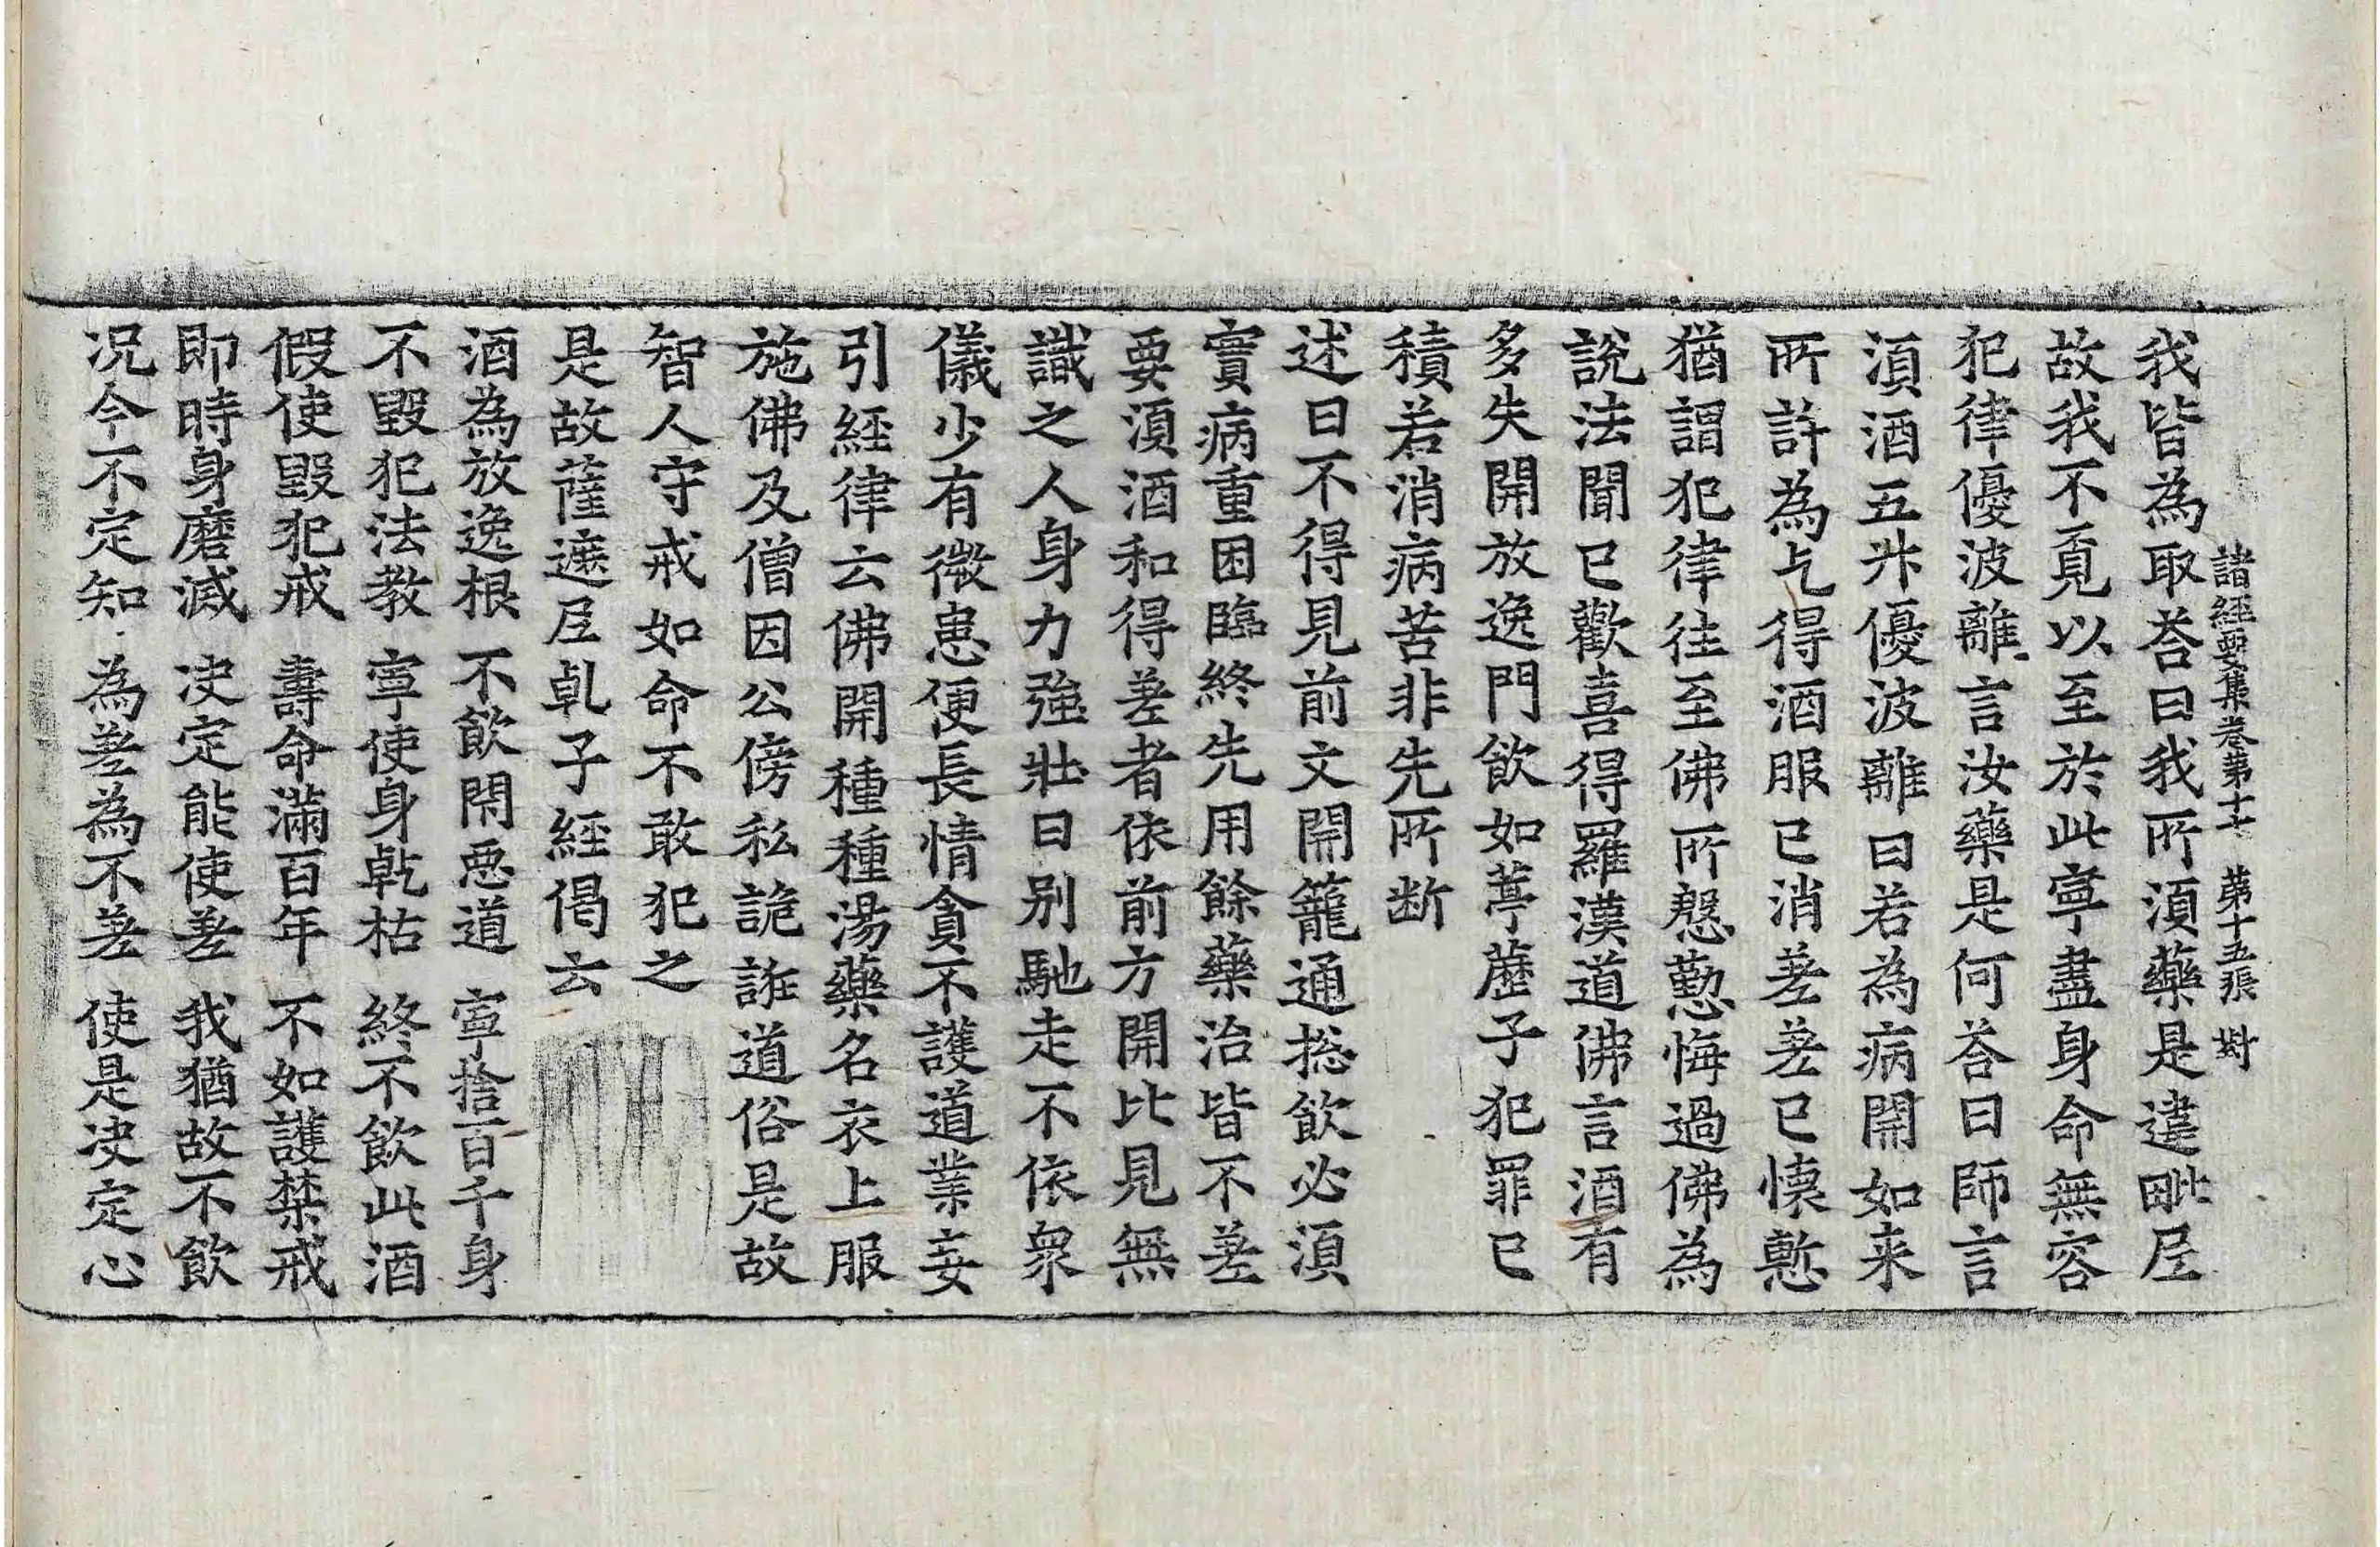 諸經要集卷第十七 第十五張 對
我皆為取荅曰我所湏藥是違毗𡰱
故我不覔以至於此寧盡身命無容
犯律優波離言汝藥是何荅曰師言
湏酒五升優波離曰若為病開如来
所許為乞得酒服已消差差已懐慙
猶謂犯律往至佛所慇懃悔過佛為
說法聞已歡喜得羅漢道佛言酒有
多失開放逸門飲如葶藶子犯罪已
積若消病苦非先所断
述曰不得見前文開籠通捴飲必湏
實病重困臨終先用餘藥治皆不差
要湏酒和得差者依前方開比見無
識之人身力強壯日別馳走不依衆
儀少有微患便長情貪不護道業妄
引經律云佛開種種湯藥名衣上服
施佛及僧因公傍私詭誑道俗是故
智人守戒如命不敢犯之
是故薩遮𡰱乹子經偈云
酒為放逸根 不飲閇惡道 寧捨百千身
不毀犯法教 寧使身乾枯 終不飲此酒
假使毀犯戒 壽命滿百年 不如護禁戒
即時身磨滅 决定能使差 我猶故不飲
况今不定知 為差為不差 使是决定心